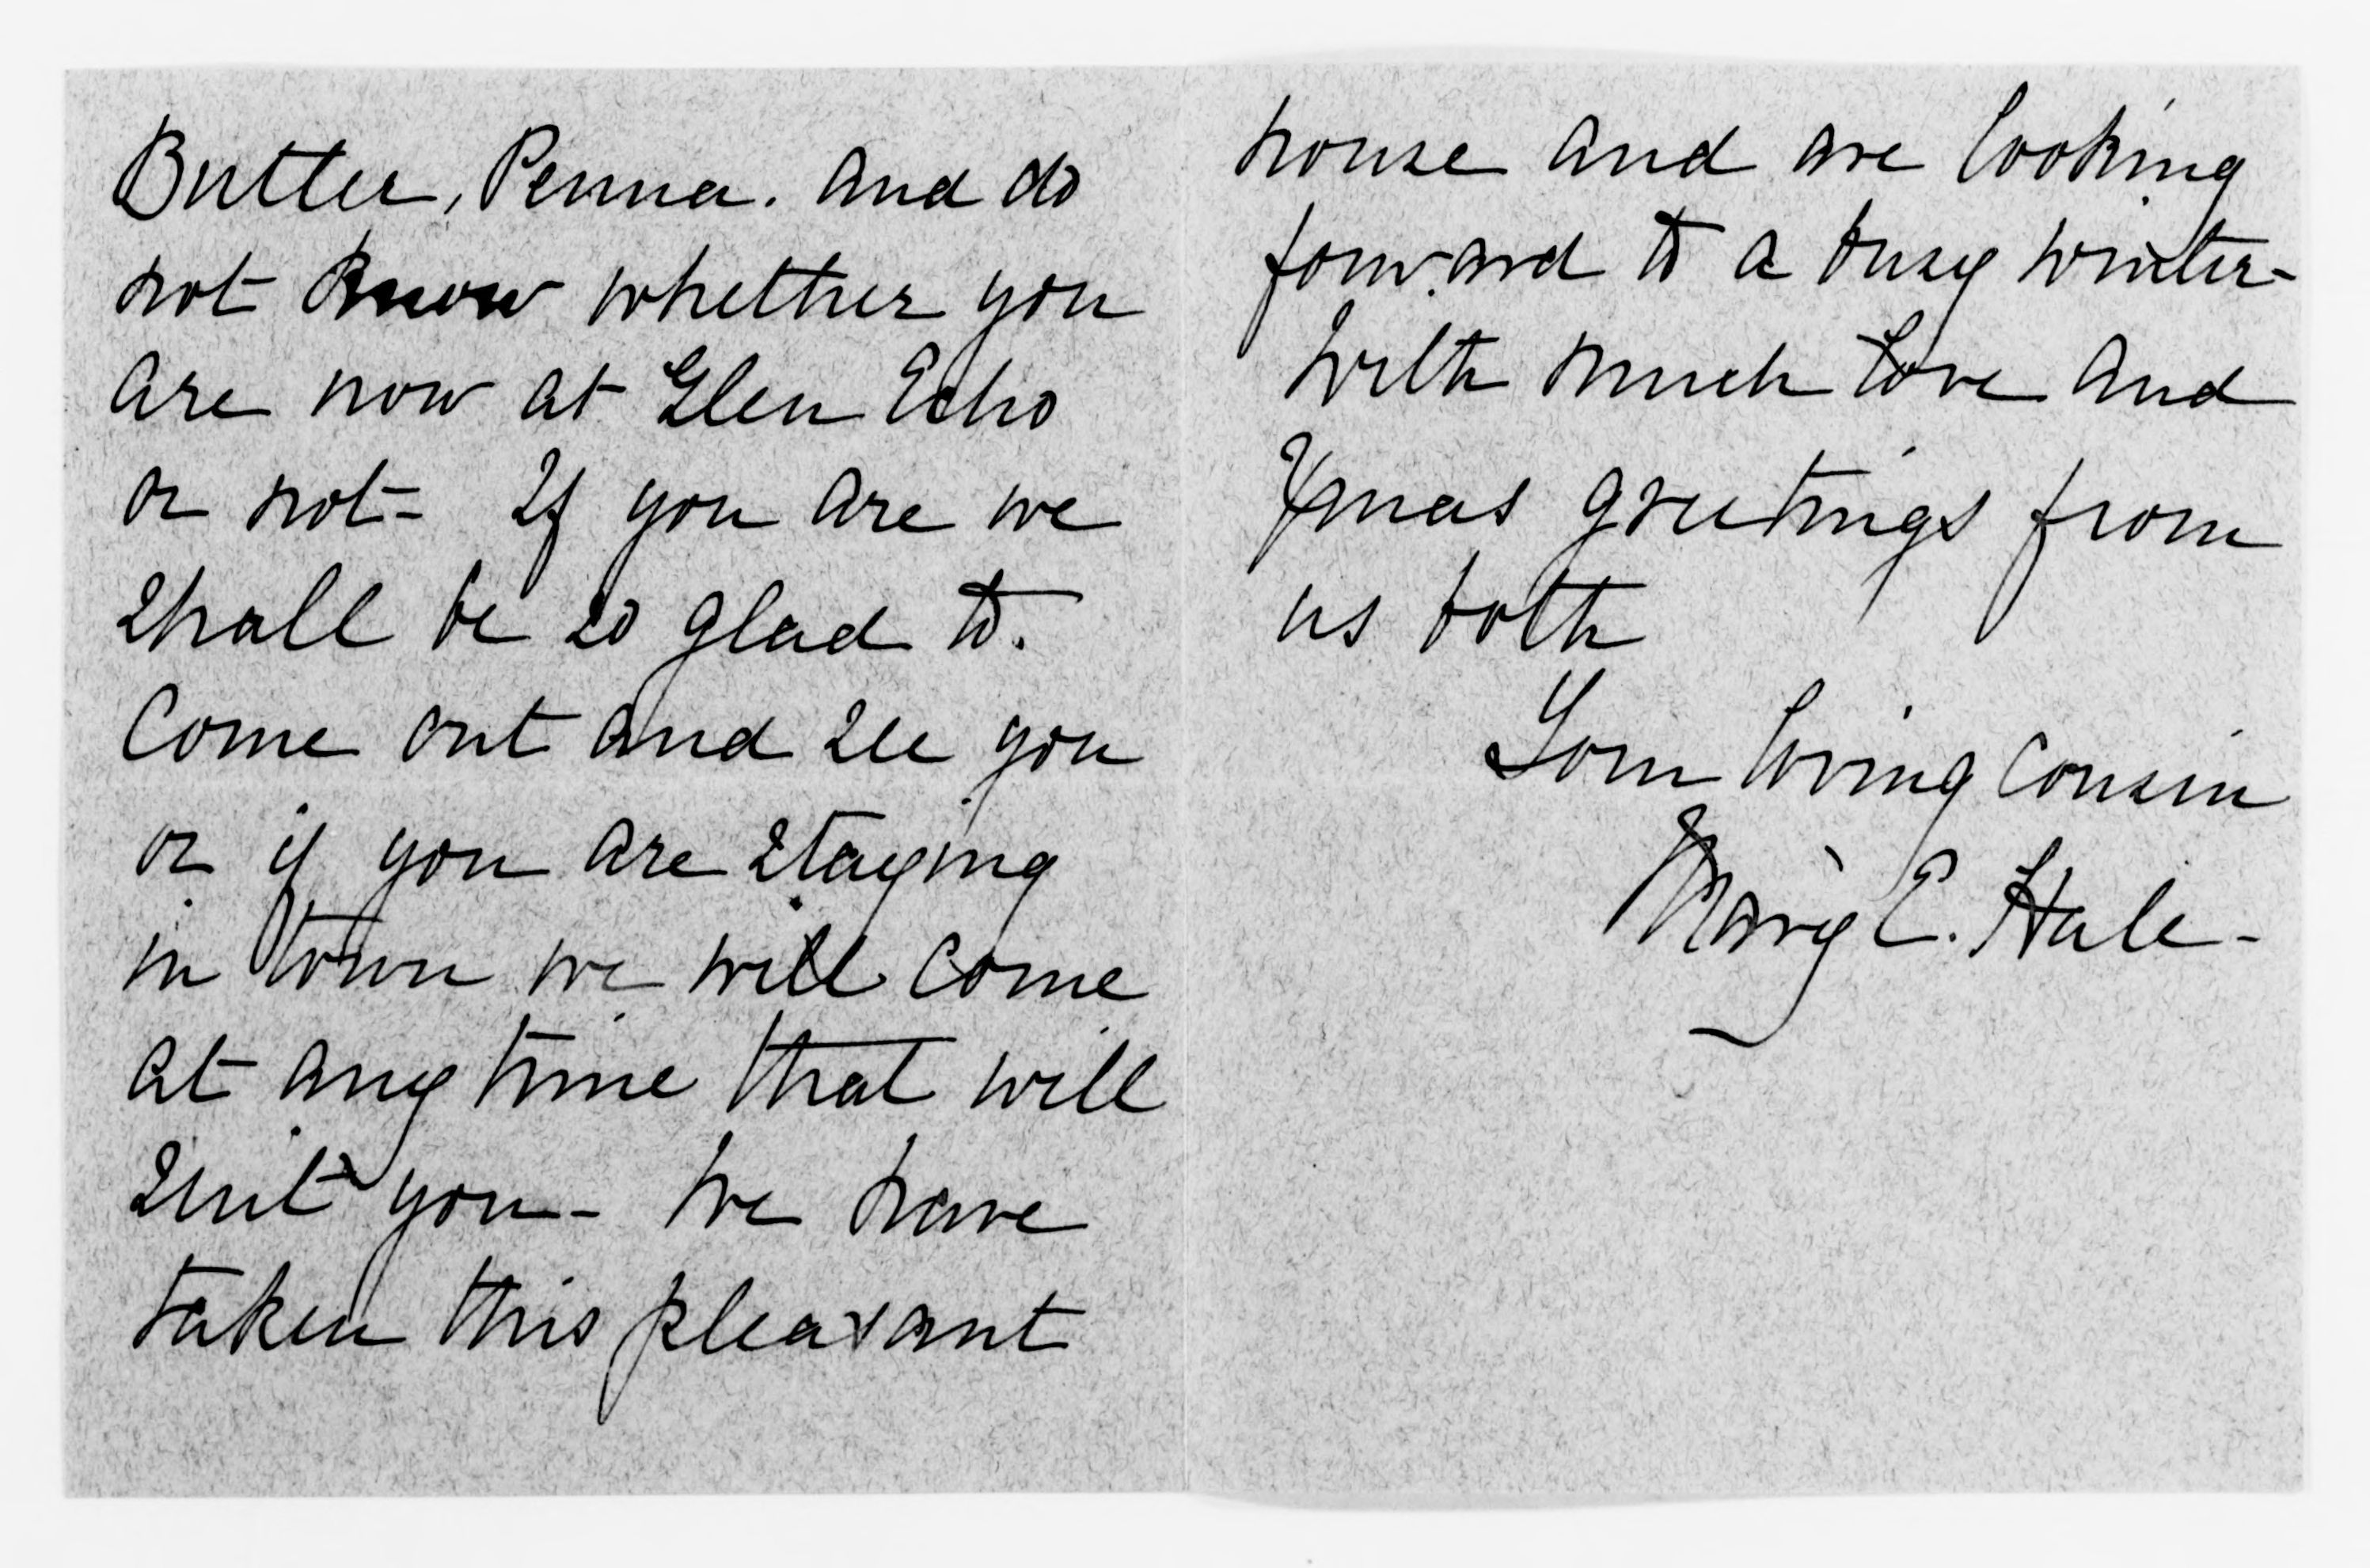 Butler, Penna. and do
not know whether you
are now at Glen Echo
or not - If you are we
shall be so glad to.
Come out and see you
or if you are staying
in town we will come
at any time that will
suit you - We have
taken this pleasant
house and are looking
forward to a busy winter -
With much love and
Xmas greetings from
us both
Your loving cousin
Mary E. Hale -